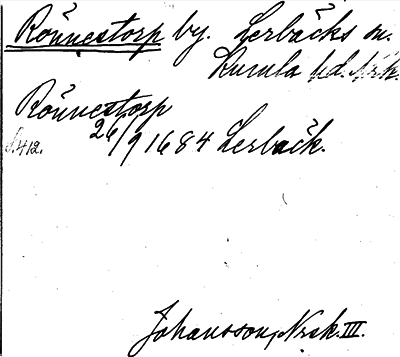 Rönnestorp by. Lerbäcks sn.
Kumla hd. Nrk.
Rönnestorp
s. 412. 26/9 1684 Lerbäck.
Johansson, Nrsk. III.